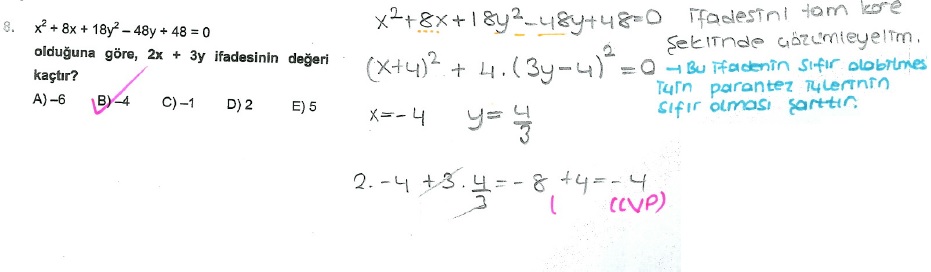 8. x² + 8x + 18y² – 48y + 48 = 0
olduğuna göre, 2x + 3y ifadesinin değeri
kaçtır?
A) –6 B) –4 C) –1 D) 2 E) 5
x²+8x+18y²-48y+48=0 ifadesini tam kare
şeklinde çözümleyelim.
(x+4)² + 4.(3y-4)² = 0 → Bu ifadenin sıfır olabilmes
için parantez içlerinin
sıfır olması şarttır.
x=-4 y=4/3
2.-4 +3.4/3=-8 +4=-4
(CVP)